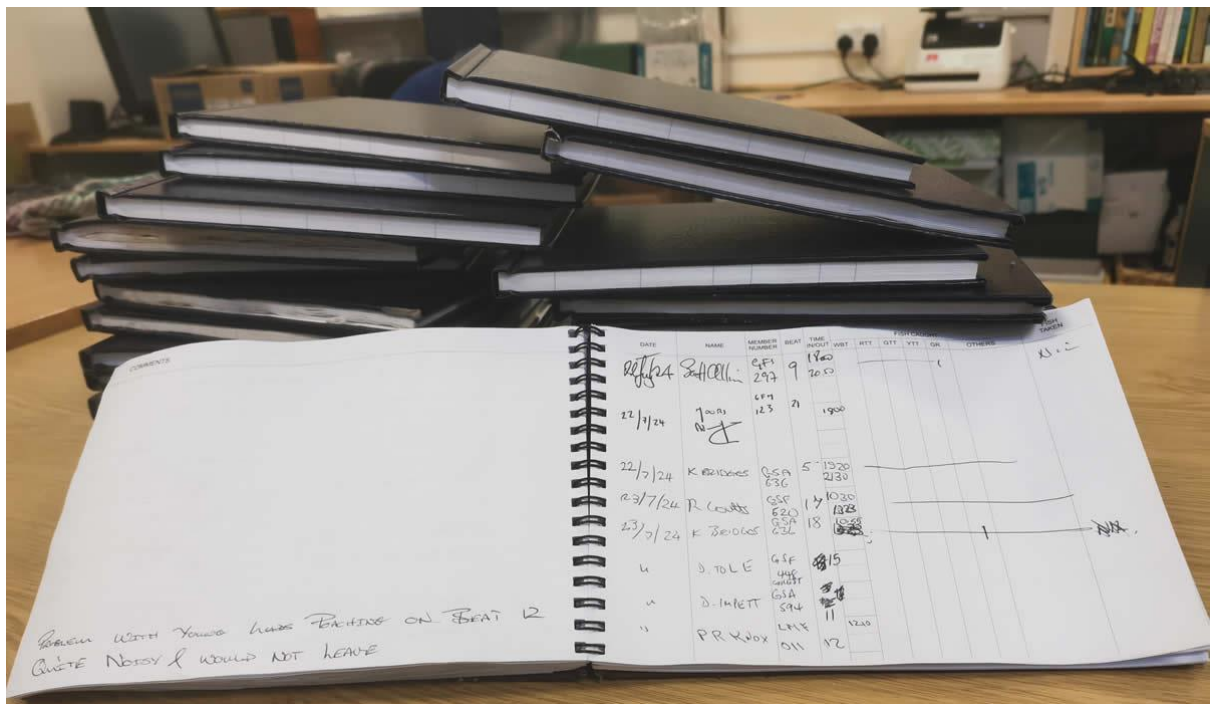 COMMENTS
PROBLEM WITH YOUNG LADS POACHING ON BEAT 12
QUITE NOISY & WOULD NOT LEAVE
FISH CAUGHT
DATE NAME MEMBER NUMBER BEAT TIME IN/OUT WBT RTT GTT YTT GR OTHERS FISH TAKEN
297 9 1800
123 21
22/7/24 1900
22/7/24 K BRIDGES GSA 636 5 1920 2130
23/7/24 R Coutts GSF 620 17 1030
23/7/24 K BRIDGES GSA 636 18
" D. TOLE GSF 15
" D. IMPETT GSA 594 11
" P R KNOX 011 12 1210